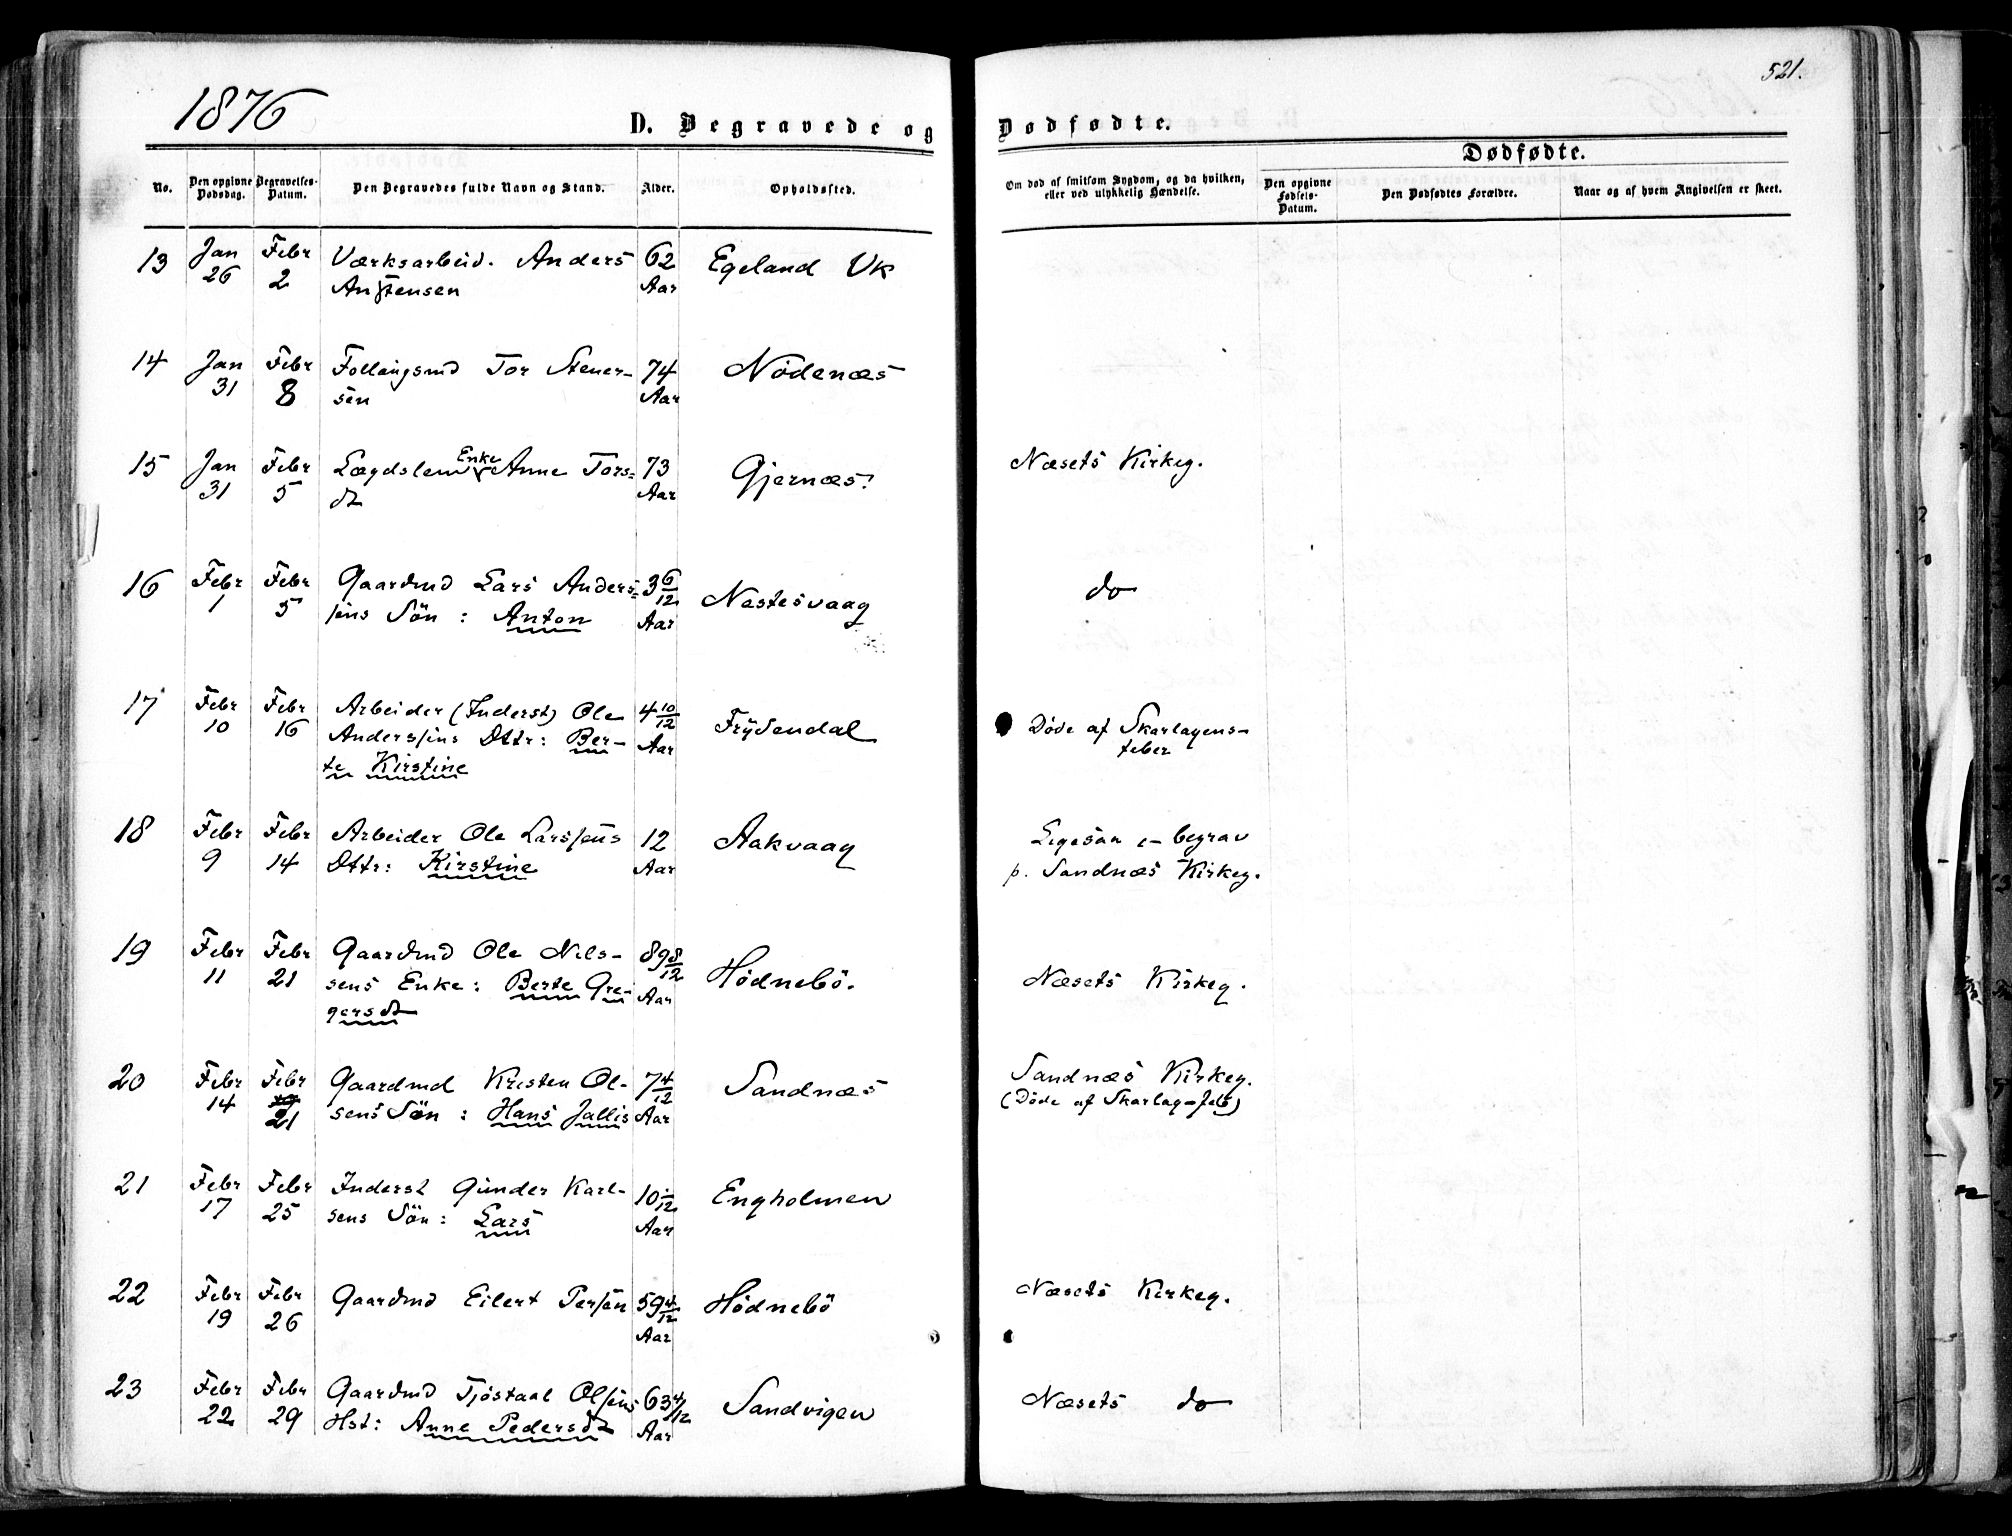 1876
521.
D. Begravede og Dødfødte.
Dødfødte.
No.
Den opgivne Dødsdag.
Begravelses-Datum.
Den Begravedes fulde Navn og Stand.
Alder.
Opholdssted.
Om død af smitsom Sygdom, og da hvilken, eller ved ulykkelig Hændelse.
Den opgivne Fødsels-Datum.
Den Dødfødtes Forældre.
Naar og af hvem Angivelsen er skeet.
13 Jan Febr Værksarbeid. Anders 62 Egeland Vk
26 2 Anstensen Aar
14 Jan Febr Føllaugsmd Tor Stener- 74 Nödenæs
31 8 sen Aar
Enke
15 Jan Febr Lægdslem Anne Tors= 73 Gjernæs. Næsets Kirkeg.
31 5 dt Aar
16 Febr Febr Gaardmd Lars Anders= 3 6/12 Nestesvaag do
1 5 sens Sön : Anton Aar
17 Febr Febr Arbeider (Inderst) Ole 4 10/12 Frydendal Døde af Skarlagens-
10 16 Anderssens Dttr: Ber- Aar feber
te Kirstine
18 Febr Febr Arbeider Ole Larssens 12 Aakvaag Ligesaa – begrav
9 14 Dttr: Kirstine Aar p. Sandnæs Kirkeg.
19 Febr Febr Gaardmd Ole Nils- 89 8/12 Hödnebö. Næsets Kirkeg.
11 21 sens Enke : Berte Gre- Aar
gersdt
20 Febr Febr Gaardmd Kristen Ol- 7 4/12 Sandnæs Sandnæs Kirkeg.
14 21 sens Sön : Hans Jallis Aar (Døde af Skarlag-feb)
21 Febr Febr Inderst Gunder Karl- 10 /12 Engholmen
17 25 sens Sön : Lars Aar
22 Febr Febr Gaardmd Eilert Persen 59 4/12 Hödnebö Næsets Kirkeg.
19 26 Aar
23 Febr Febr Gaardmd Tjöstaal Olsens 63 4/12 Sandvigen Næsets do
22 29 Hst: Anne Pedersdt Aar